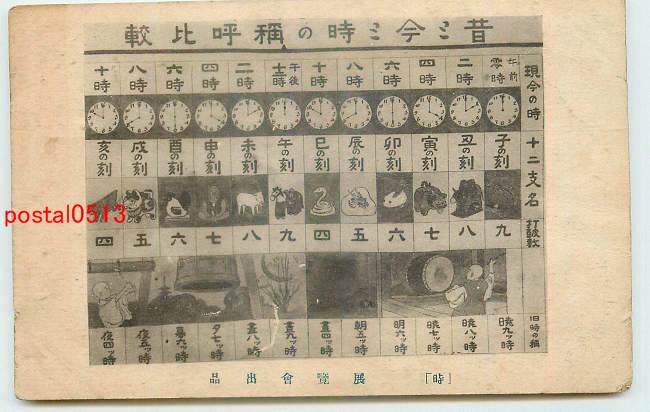 昔ミ今ミ時の稱呼比較
現今の時
午前零時 二時 四時 六時 八時 十時 午後十二時 二時 四時 六時 八時 十時
十二支名
子の刻 丑の刻 寅の刻 卯の刻 辰の刻 巳の刻 午の刻 未の刻 申の刻 酉の刻 戌の刻 亥の刻
打鼓数
九 八 七 六 五 四 九 八 七 六 五 四
旧時の稱
暁九ッ時 暁八ッ時 暁七ッ時 明六ッ時 朝五ッ時 昼四ッ時 昼九ッ時 昼八ッ時 夕七ッ時 暮六ッ時 夜五ッ時 夜四ッ時
「時」展覽會出品
postal0513